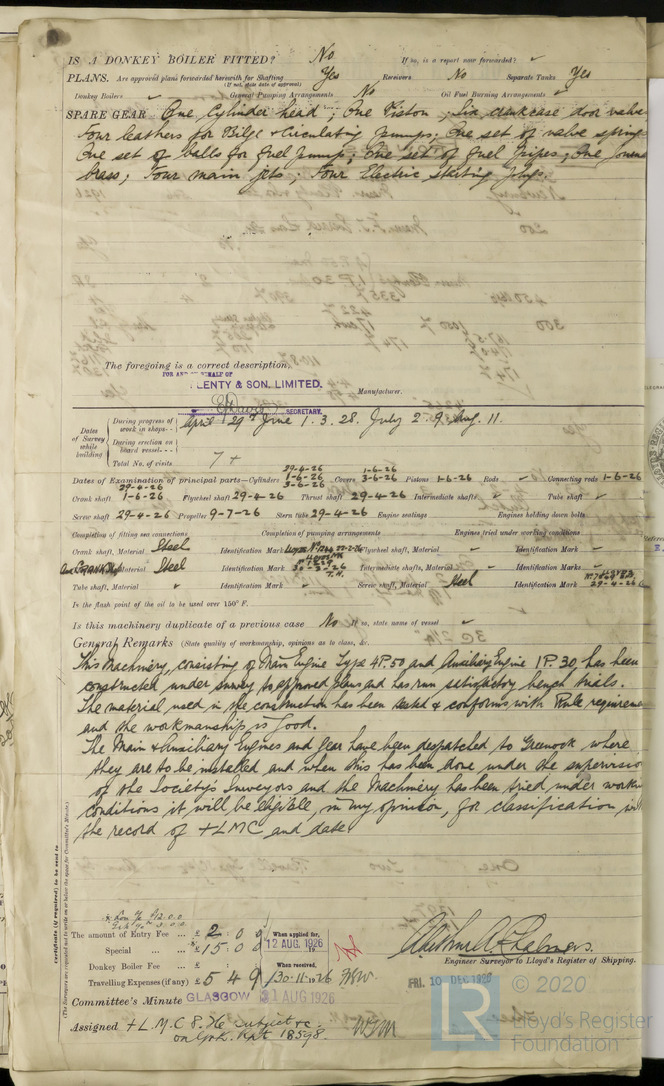 IS A DONKEY BOILER FITTED? No If so, is a report now forwarded? ✓
PLANS. Are approved plans forwarded herewith for Shafting Yes Receivers No Separate Tanks Yes
(If not, state date of approval)
Donkey Boilers ✓ General Pumping Arrangements No Oil Fuel Burning Arrangements ✓
SPARE GEAR One Cylinder head; One Piston; Six crankcase door valve
Four leathers for Bilge & Circulating pumps; One set of valve springs
One set of balls for fuel pump; One set of fuel pipes; One
brass; Four main jets; Four Electric starting plugs.
The foregoing is a correct description,
FOR AND ON BEHALF OF
PLENTY & SON, LIMITED.
Manufacturer.
SECRETARY.
Dates of Survey while building
During progress of work in shops - - April 29th June 1. 3. 28. July 2. 9. Aug. 11.
During erection on board vessel - - -
Total No. of visits 7 +
Dates of Examination of principal parts—Cylinders 29-4-26 1-6-26 3-6-26 Covers 1-6-26 3-6-26 Pistons 1-6-26 Rods ✓ Connecting rods 1-6-26
Crank shaft 29-4-26 1-6-26 Flywheel shaft 29-4-26 Thrust shaft 29-4-26 Intermediate shafts ✓ Tube shaft ✓
Screw shaft 29-4-26 Propeller 9-7-26 Stern tube 29-4-26 Engine seatings Engines holding down bolts
Completion of fitting sea connections Completion of pumping arrangements Engines tried under working conditions
Crank shaft, Material Steel Identification Mark Flywheel shaft, Material ✓ Identification Mark ✓
Material Steel Identification Mark Intermediate shafts, Material ✓ Identification Marks ✓
Tube shaft, Material ✓ Identification Mark ✓ Screw shaft, Material Steel Identification Mark 29-4-26
Is the flash point of the oil to be used over 150° F.
Is this machinery duplicate of a previous case No If so, state name of vessel ✓
General Remarks (State quality of workmanship, opinions as to class, &c.
This Machinery, consisting of Main Engine Type 4P.50 and Auxiliary Engine 1P.30, has been
constructed under survey to approved plans and has run satisfactory bench trials.
The material used in the construction has been tested & conforms with Rule requireme
and the workmanship is good.
The Main & Auxiliary Engines and gear have been despatched to Greenock where
they are to be installed and when this has been done under the supervisio
of the Society's Surveyors and the Machinery has been tried under workin
conditions it will be eligible, in my opinion, for classification in
the record of +LMC and date
Certificate (if required) to be sent to
(The Surveyors are requested not to write on or below the space for Committee's Minute.)
The amount of Entry Fee ... £ 2 : 0 : 0 When applied for,
Special ... ... £ 15 : 0 : 0 12 AUG. 1926
Donkey Boiler Fee ... £ : : When received,
Travelling Expenses (if any) £ 5 : 4 : 9 30-11-1926
Engineer Surveyor to Lloyd's Register of Shipping.
Committee's Minute GLASGOW 31 AUG 1926
FRI. 10 DEC 1926
Assigned +L.M.C 8.26 subject to
on Grk. Rpt 18598.
© 2020
LR
Lloyd's Register
Foundation